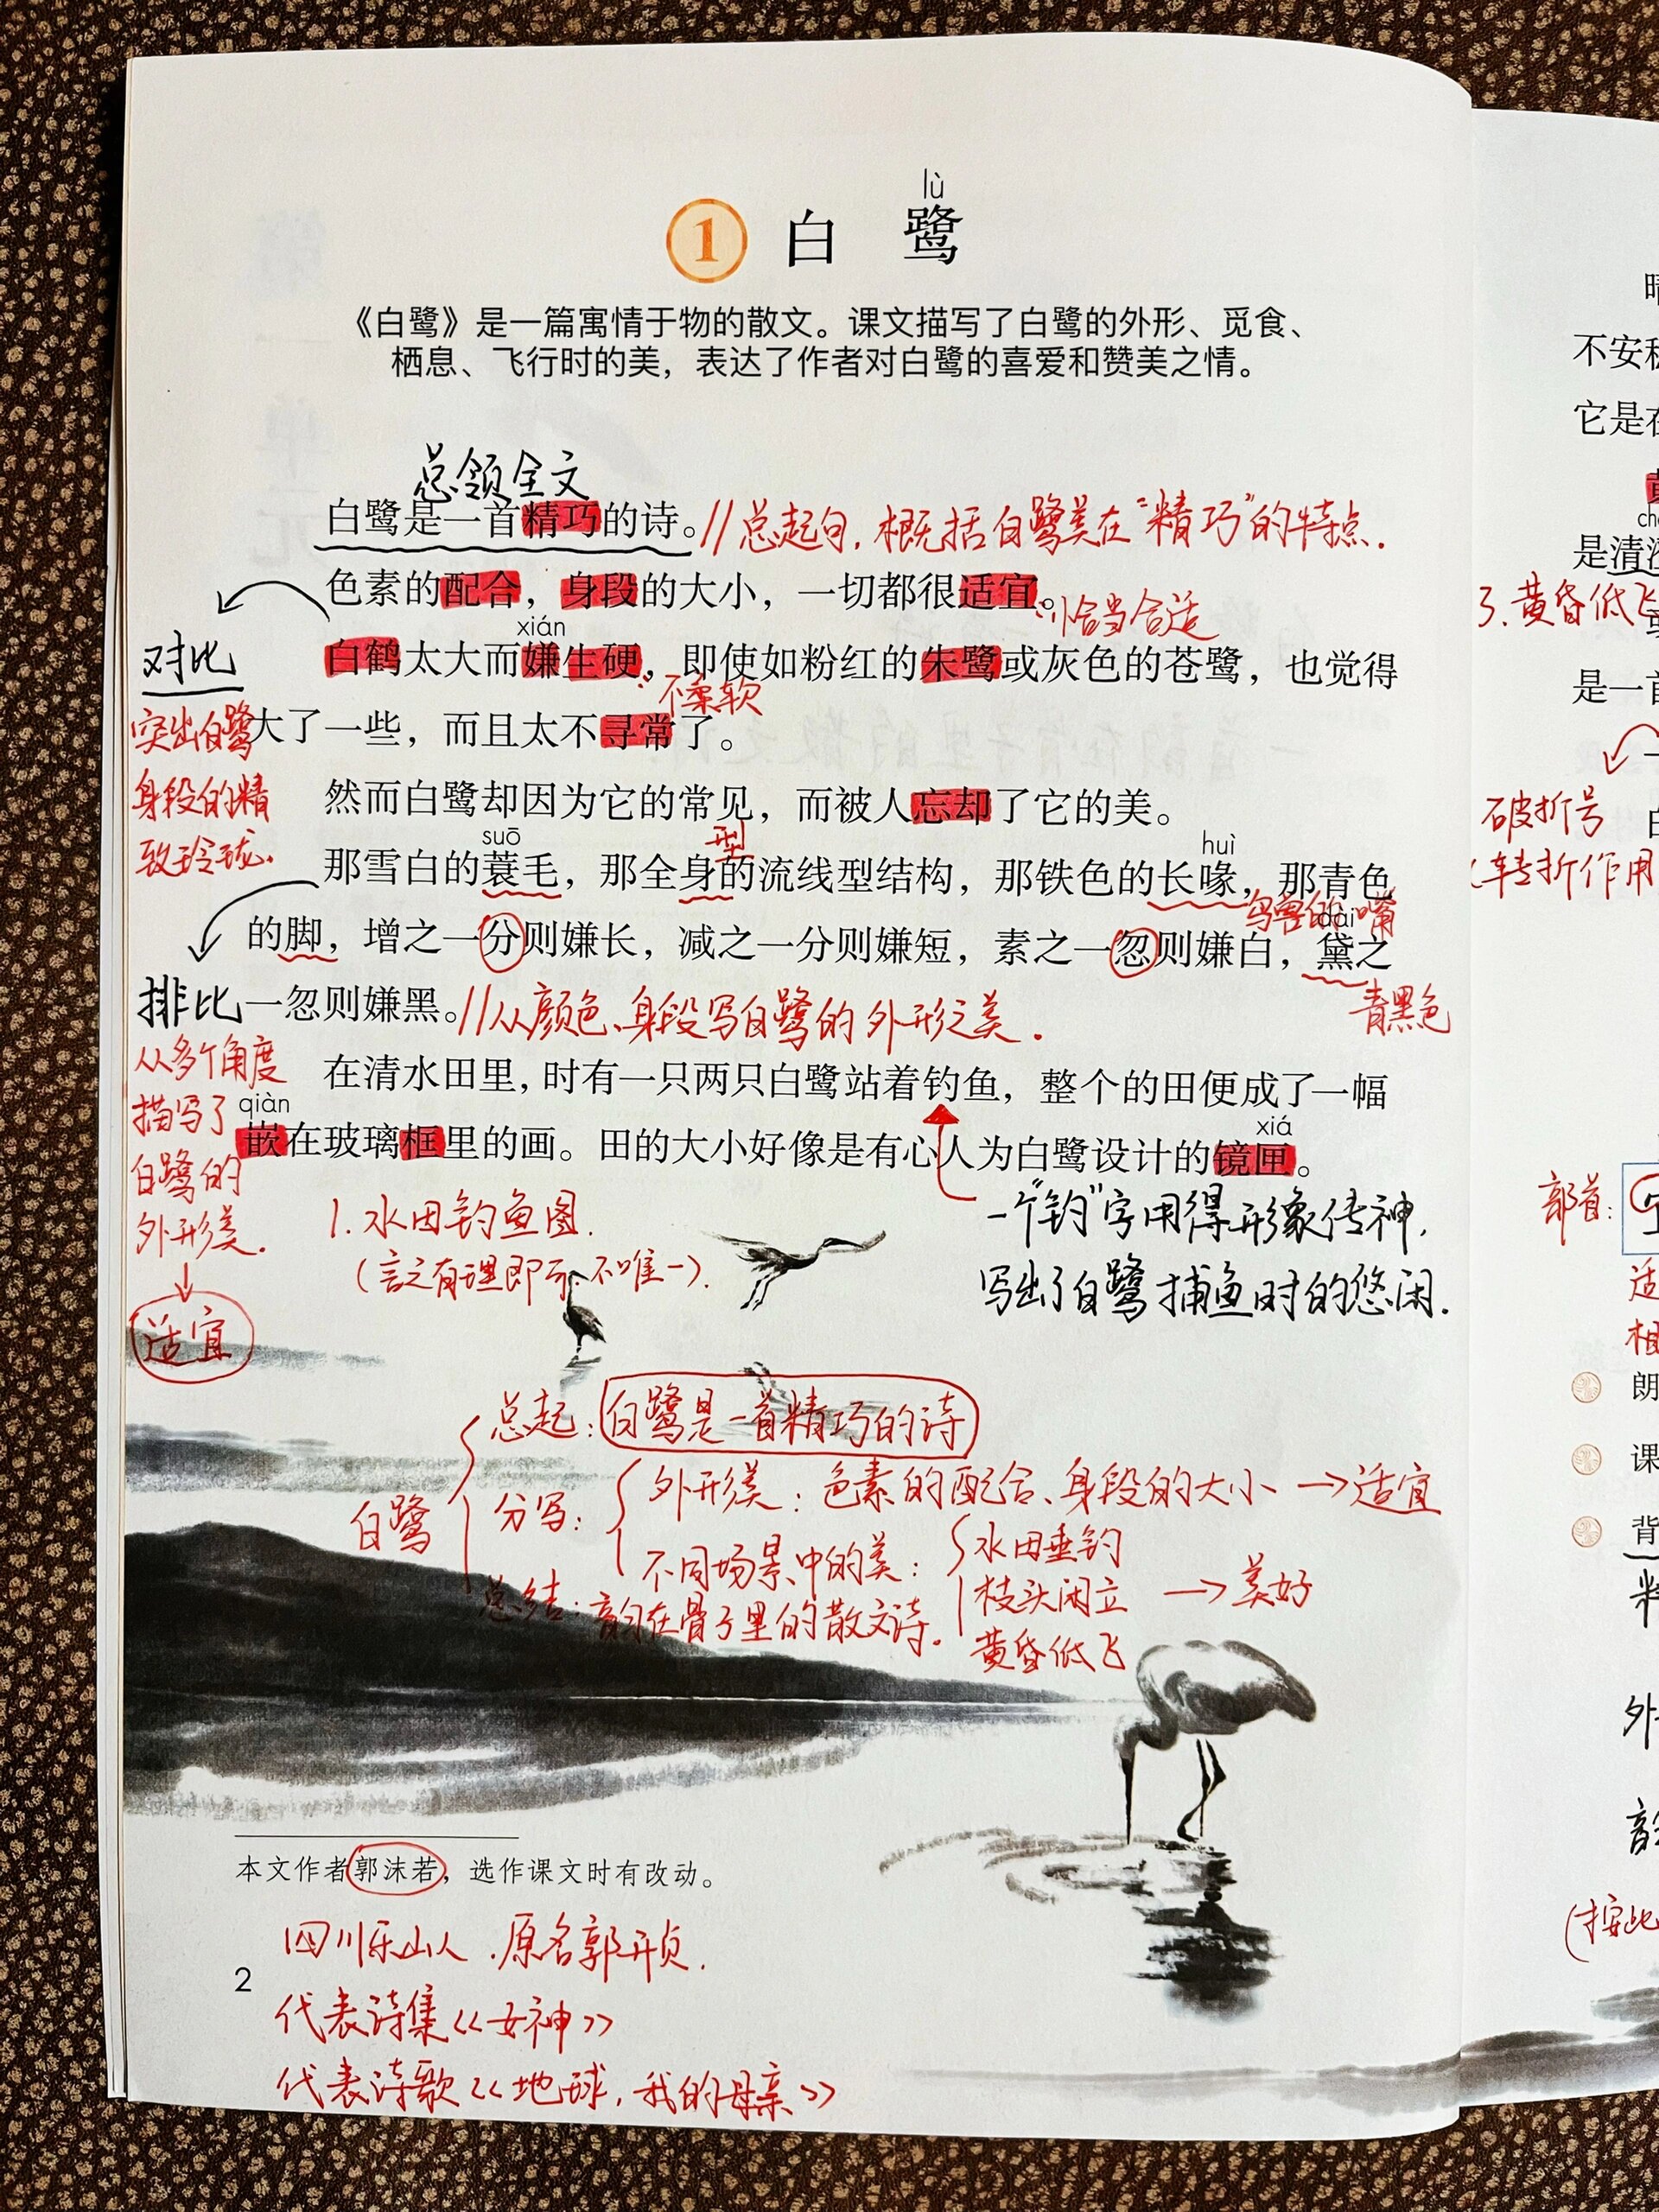 lù
1 白鹭
《白鹭》是一篇寓情于物的散文。课文描写了白鹭的外形、觅食、
栖息、飞行时的美，表达了作者对白鹭的喜爱和赞美之情。
总领全文
白鹭是一首精巧的诗。//总起句，概括白鹭美在“精巧”的特点.
色素的配合，身段的大小，一切都很适宜。
恰当合适
xián
白鹤太大而嫌生硬，即使如粉红的朱鹭或灰色的苍鹭，也觉得
不柔软
大了一些，而且太不寻常了。
对比
突出白鹭
身段的精
致玲珑.
然而白鹭却因为它的常见，而被人忘却了它的美。
suō
型
huì
那雪白的蓑毛，那全身的流线型结构，那铁色的长喙，那青色
鸟兽的嘴
dài
的脚，增之一分则嫌长，减之一分则嫌短，素之一忽则嫌白，黛之
青黑色
一忽则嫌黑。//从颜色、身段写白鹭的外形之美.
排比
从多个角度
描写了
白鹭的
外形美.
适宜
在清水田里，时有一只两只白鹭站着钓鱼，整个的田便成了一幅
qiàn
xiá
嵌在玻璃框里的画。田的大小好像是有心人为白鹭设计的镜匣。
1.水田钓鱼图.
(言之有理即可,不唯一).
一个“钓”字用得形象传神,
写出了白鹭捕鱼时的悠闲.
白鹭
总起：白鹭是一首精巧的诗
分写：
外形美：色素的配合、身段的大小→适宜
不同场景中的美：
水田垂钓
枝头闲立
黄昏低飞
→美好
总结：韵在骨子里的散文诗.
本文作者郭沫若，选作课文时有改动。
四川乐山人.原名郭开贞.
2
代表诗集《女神》
代表诗歌《地球,我的母亲》
不安
它是在
是清澄
3.黄昏低飞
是一首
破折号
转折作用
部首：
适
相
朗
课
背
外
(按此